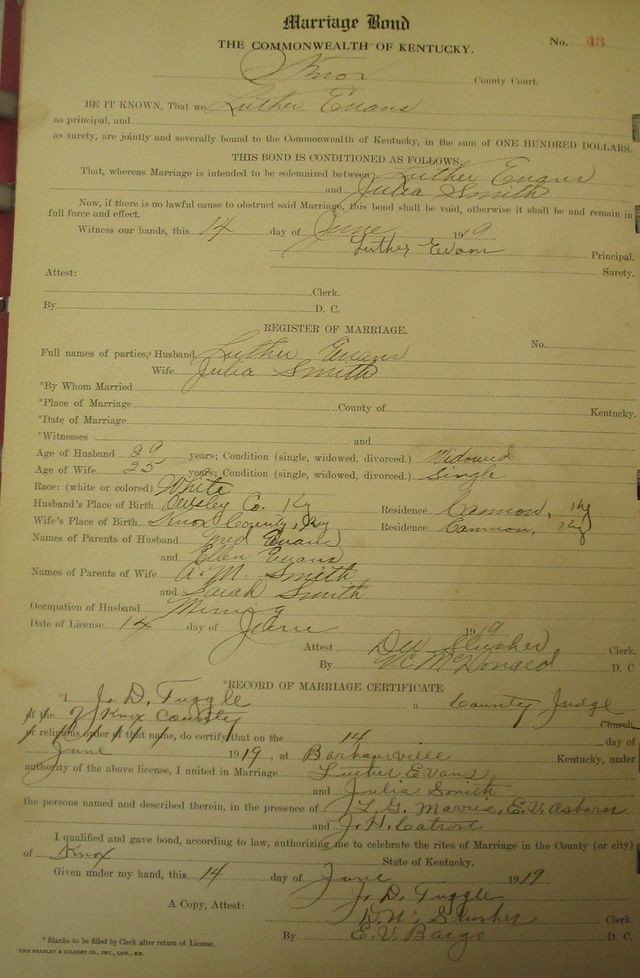 Marriage Bond
No. 43
THE COMMONWEALTH OF KENTUCKY.
Knox County Court.
BE IT KNOWN, That we Luther Evans
as principal, and
as surety, are jointly and severally bound to the Commonwealth of Kentucky, in the sum of ONE HUNDRED DOLLARS.
THIS BOND IS CONDITIONED AS FOLLOWS:
That, whereas Marriage is intended to be solemnized between Luther Evans
and Julia Smith
Now, if there is no lawful cause to obstruct said Marriage, this bond shall be void, otherwise it shall be and remain in
full force and effect.
Witness our hands, this 14 day of June 1919
Luther Evans Principal.
Surety.
Attest:
Clerk.
By D. C.
REGISTER OF MARRIAGE.
No.
Full names of parties, Husband Luther Evans
Wife Julia Smith
*By Whom Married
*Place of Marriage County of Kentucky.
*Date of Marriage
*Witnesses and
Age of Husband 29 years; Condition (single, widowed, divorced.) Widowed
Age of Wife 25 years; Condition (single, widowed, divorced.) Single
Race: (white or colored) White
Husband's Place of Birth Owsley Co. Ky Residence Cannon, Ky
Wife's Place of Birth Knox County, Ky Residence Cannon, Ky
Names of Parents of Husband Evans
and Ellen Evans
Names of Parents of Wife A. M. Smith
and Sarah Smith
Occupation of Husband Mining
Date of License 14 day of June 1919
Attest D W Slusher Clerk.
By V.C. McDonald D. C
*RECORD OF MARRIAGE CERTIFICATE
*I, J. D. Tuggle a County Judge
of the of Knox County Church,
or religious order of that name, do certify that on the 14 day of
June 1919, at Barbourville Kentucky, under
authority of the above license, I united in Marriage Luther Evans
and Julia Smith
the persons named and described therein, in the presence of L. G. E. V.
and J. H. Catron
I qualified and gave bond, according to law, authorizing me to celebrate the rites of Marriage in the County (or city)
of Knox State of Kentucky.
Given under my hand, this 14 day of June 1919
J. D. Tuggle
A Copy, Attest: D. W. Slusher Clerk.
By E. V. Bargo D. C.
* Blanks to be filled by Clerk after return of License.
THE BRADLEY & GILBERT CO., INC., LOU., KY.